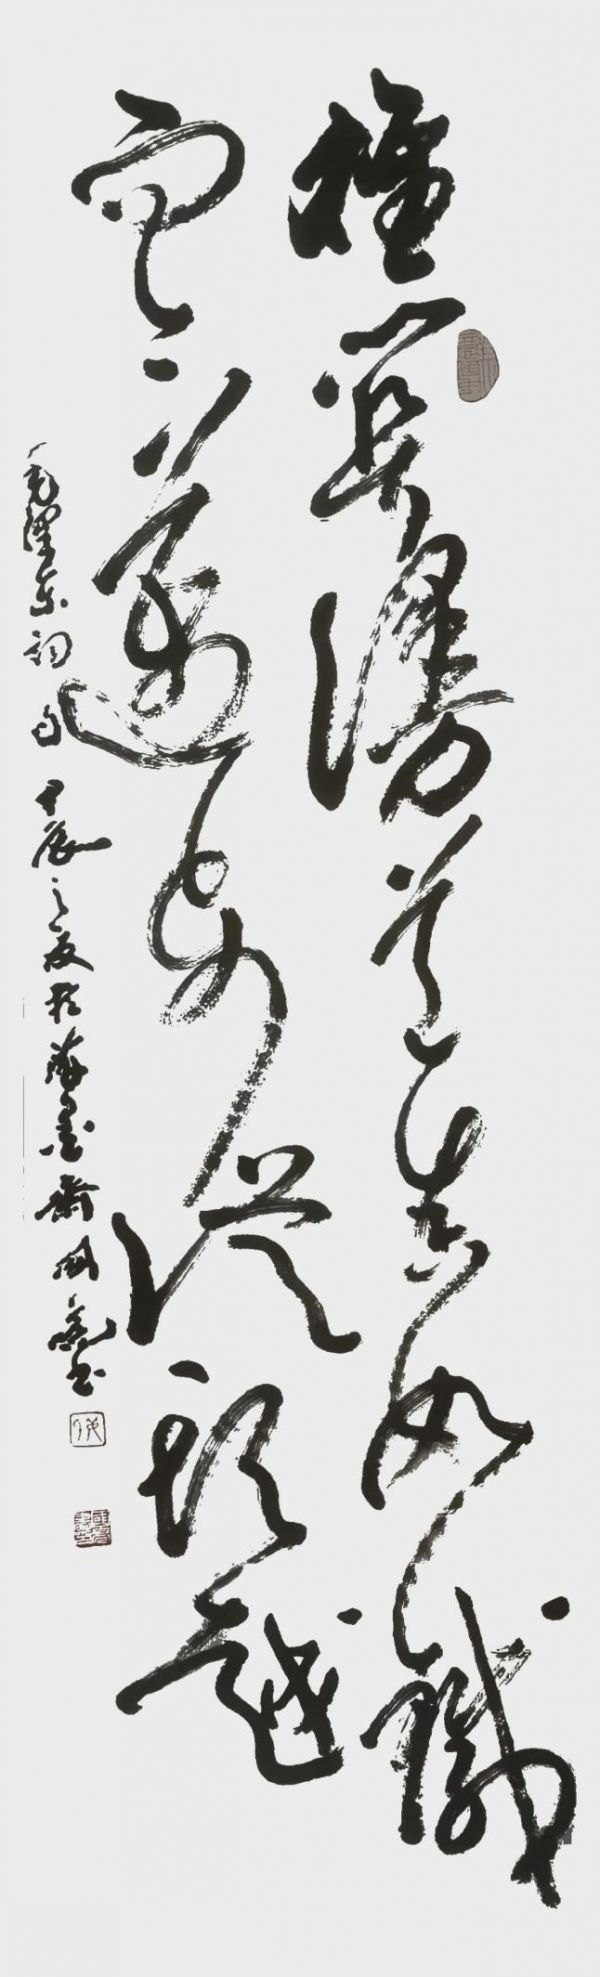 雄關漫道真如鐵
而今邁步從頭越
毛澤東詞句 甲辰之夏於墨齋書